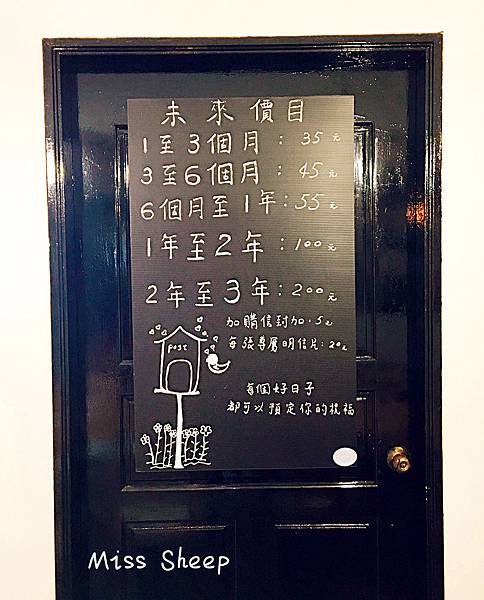 未來價目
1至3個月：35元
3至6個月：45元
6個月至1年：55元
1年至2年：100元
2年至3年：200元
加購信封加·5元
每張專屬明信片：20元
post
每個好日子
都可以預定你的祝福
Miss Sheep